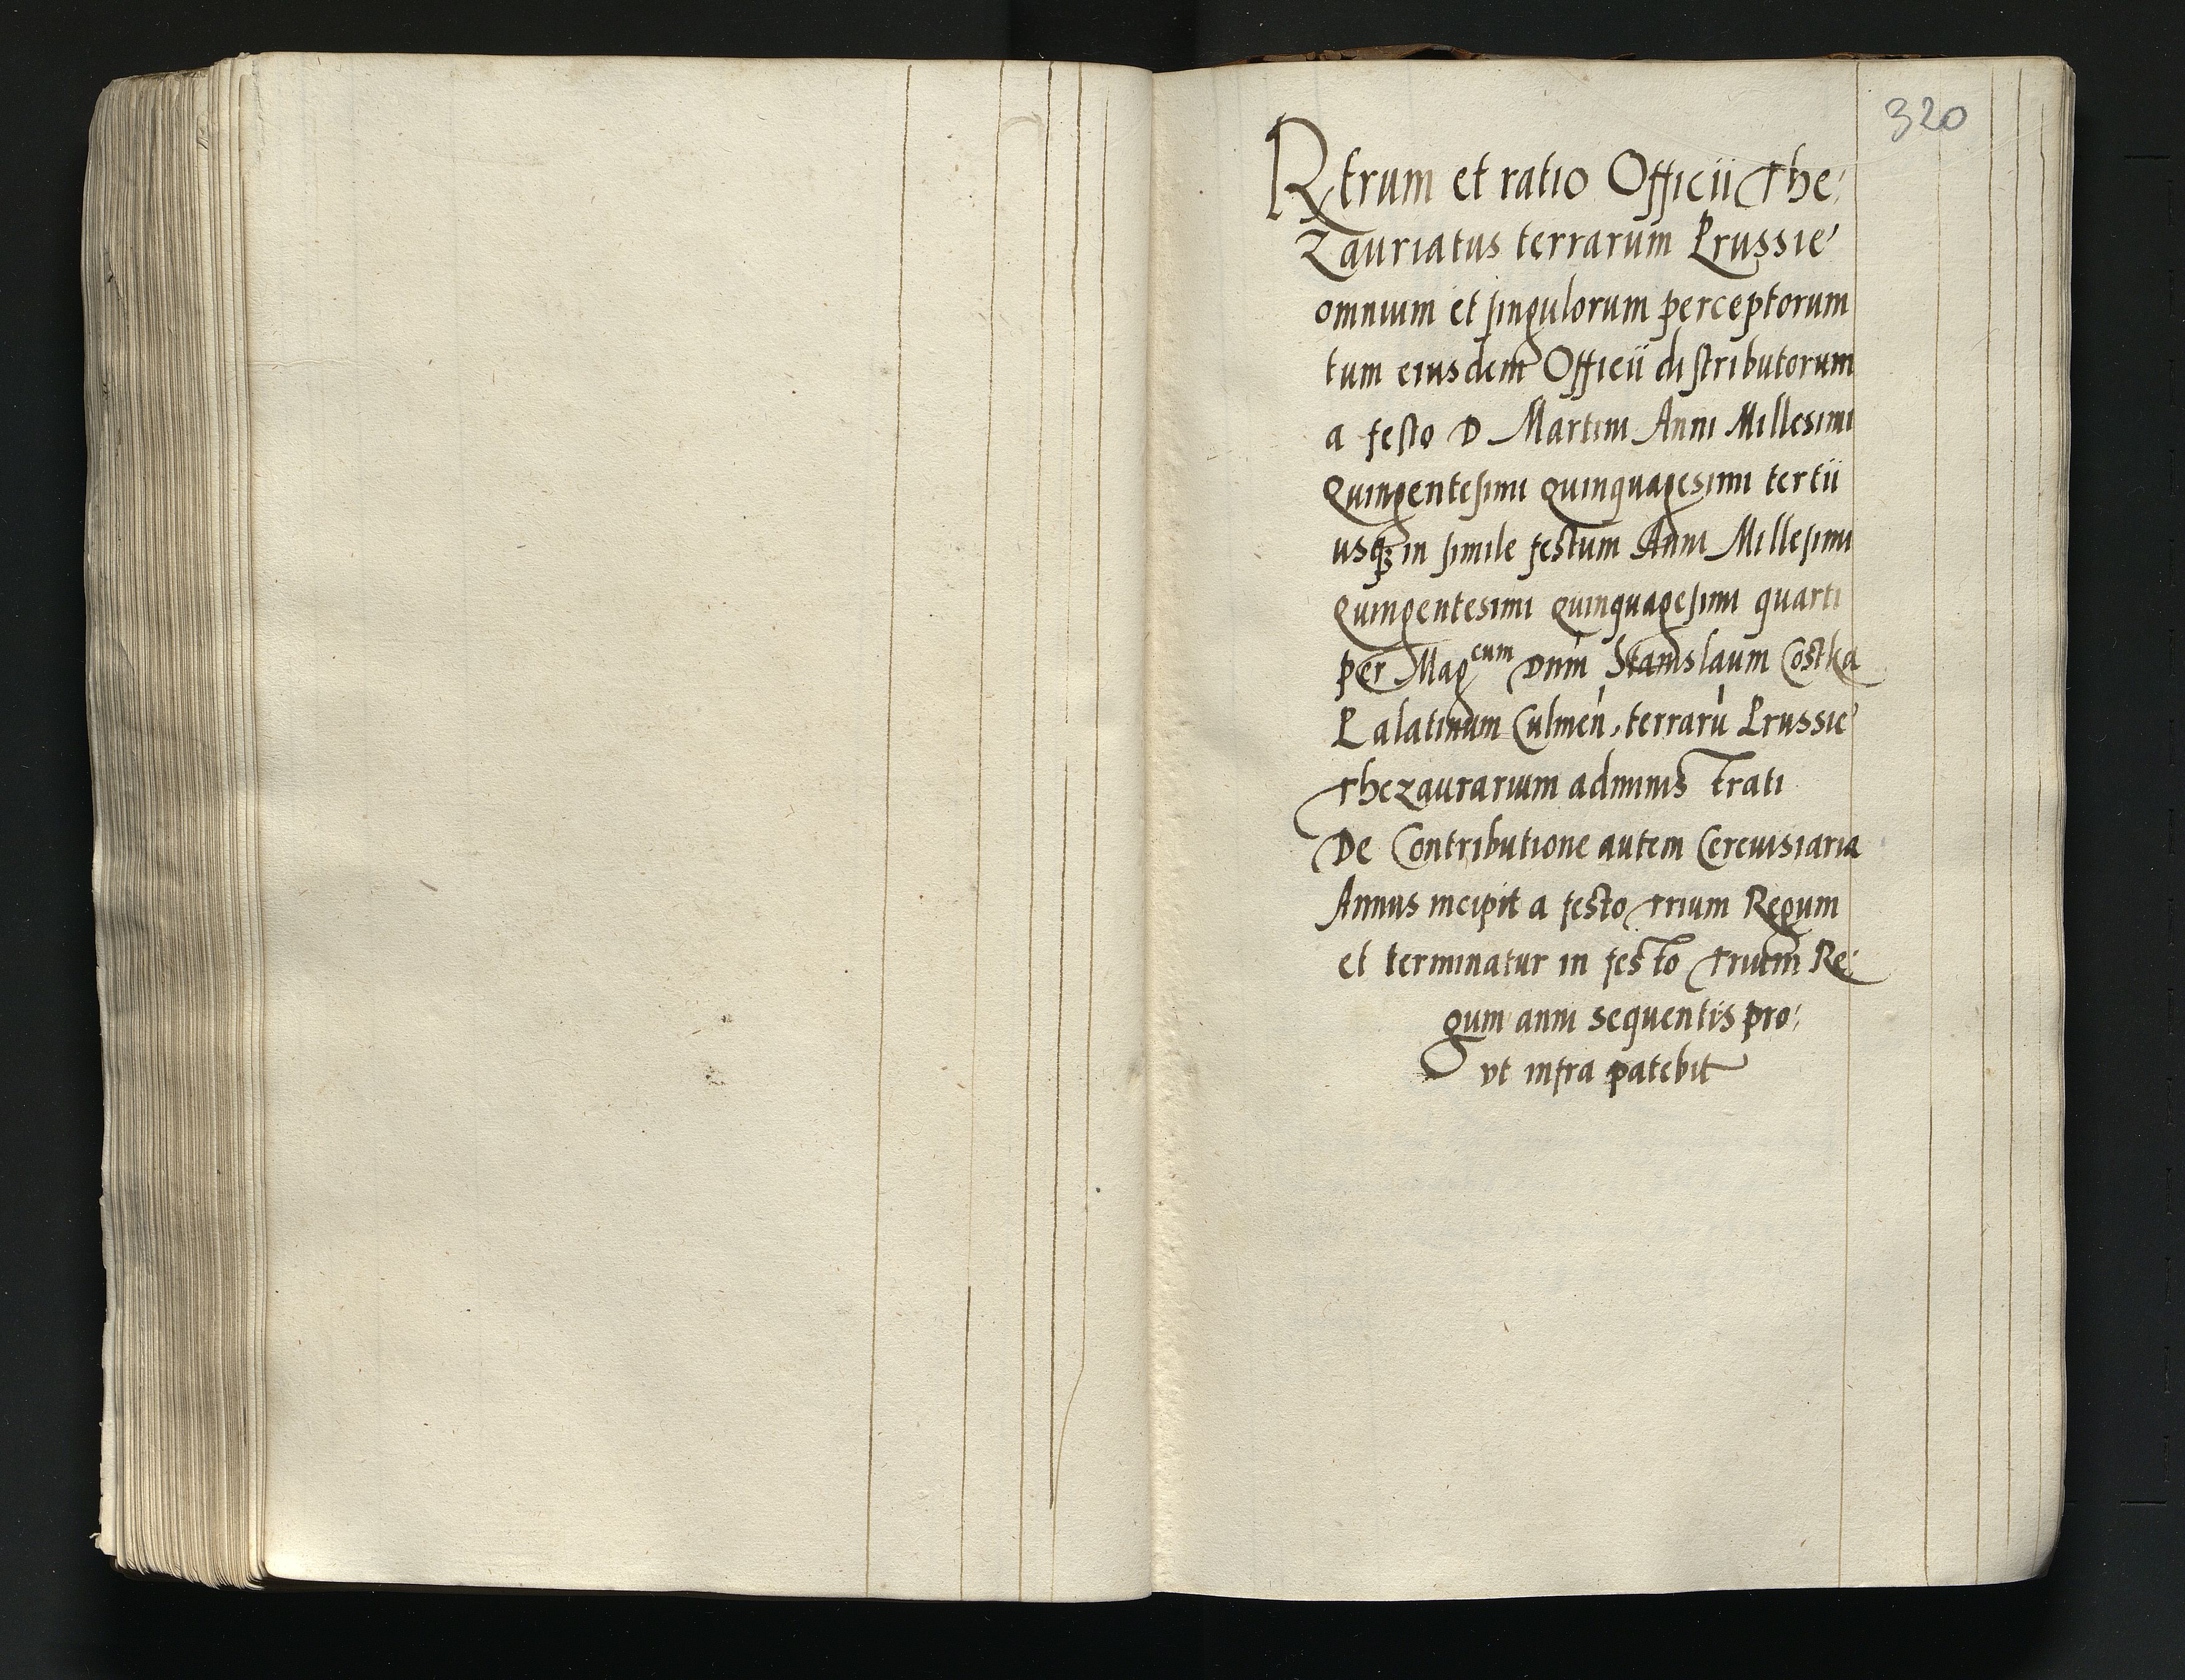 320
Rtrum et ratio Officii The:
zauriatus terrarum Prussie
omnium et singulorum perceptorum
tum eiusdem Officii distributorum
a festo D Martini Anni Millesimi
Quingentesimi Quinquagesimi tertii
usqꝫ in simile festum Anni Millesimi
Quingentesimi Quinquagesimi quarti
per Mag^cum Dnm̄ Stanislaum Costka
Palatinum Culmen̄, terrarū Prussie
Thezaurarium administrati
De Contributione autem Cerevisiaria
Annus incipit a festo Trium Regum
et terminatur in festo Trium Re:
gum anni sequentis pro:
vt infra patebit